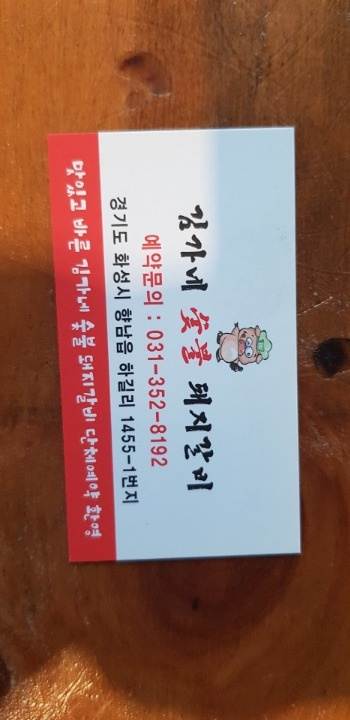 김가네 숯불 돼지갈비
예약문의 : 031-352-8192
경기도 화성시 향남읍 하길리 1455-1번지
맛있고 바른 김가네 숯불 돼지갈비 단체예약 환영